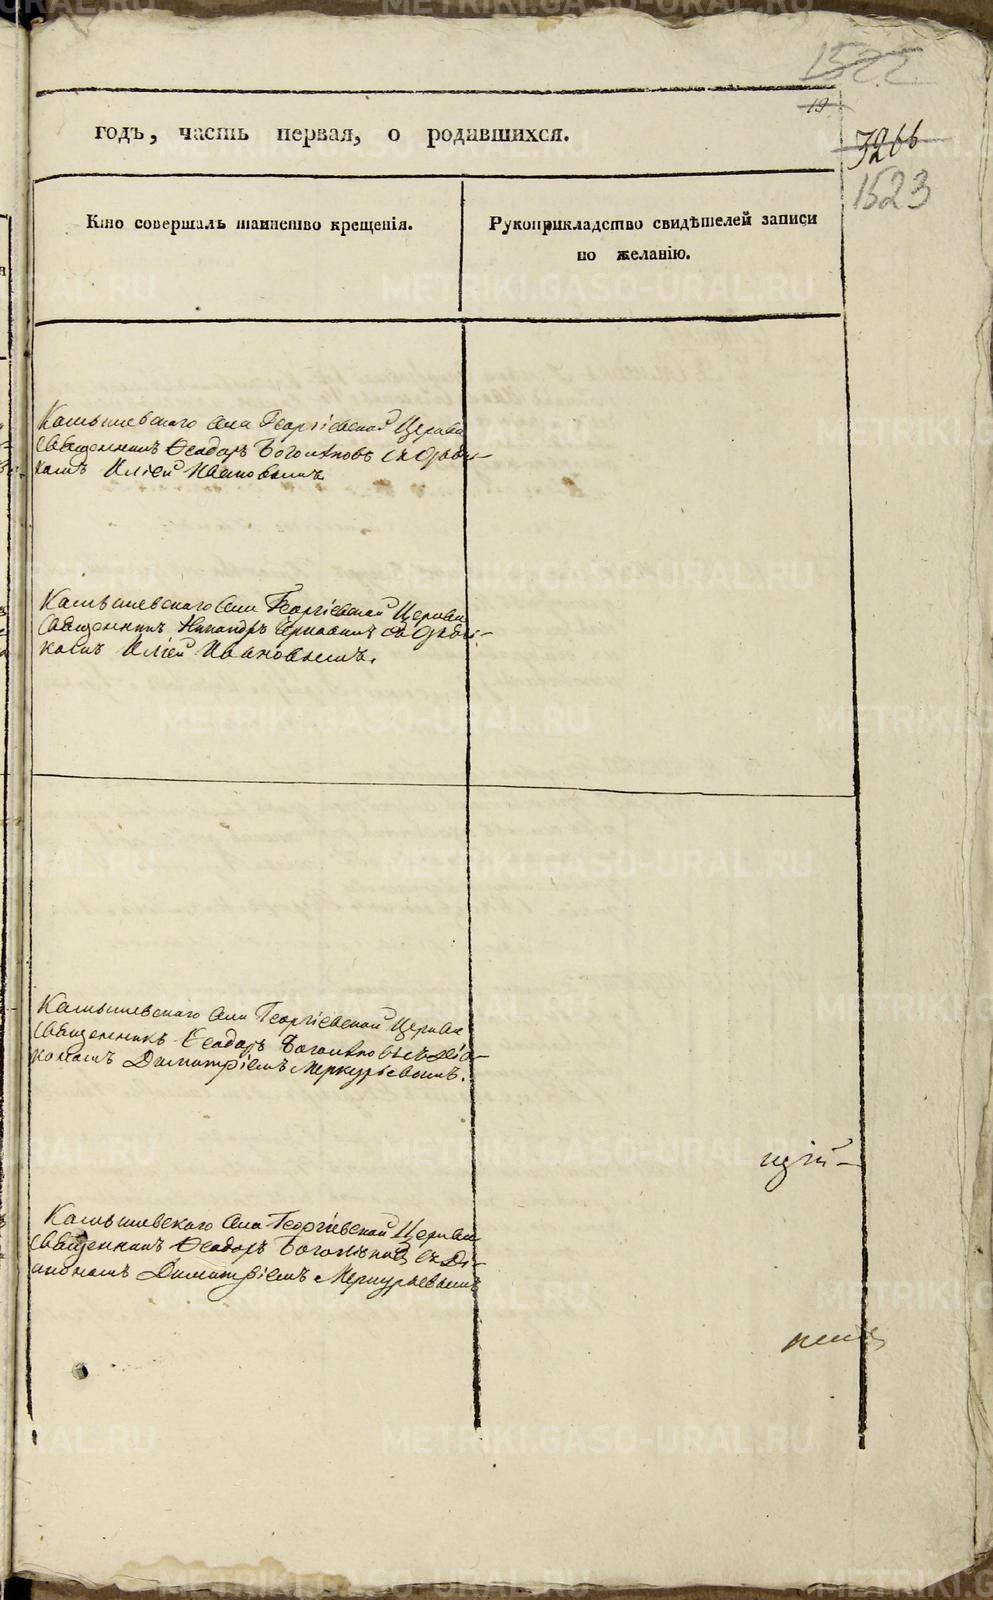 1522
19
годъ, часть первая, о родившихся.
3266
1523
Кто совершалъ таинство крещенія.
Рукоприкладство свидѣтелей записи
по желанію.
Камышевскаго села Георгіевской Церкви
священникъ Ѳеодоръ Боголѣповъ съ дьяч-
комъ Иліей Ивановымъ
Камышевскаго села Георгіевской Церкви
священникъ Никандръ съ дьяч-
комъ Иліей Ивановымъ.
Камышевскаго села Георгіевской Церкви
священникъ Ѳеодоръ Боголѣповъ съ Діа-
кономъ Димитріемъ Меркурьевымъ.
Камышевскаго села Георгіевской Церкви
священникъ Ѳеодоръ Боголѣповъ съ Ді-
акономъ Димитріемъ Меркурьевымъ